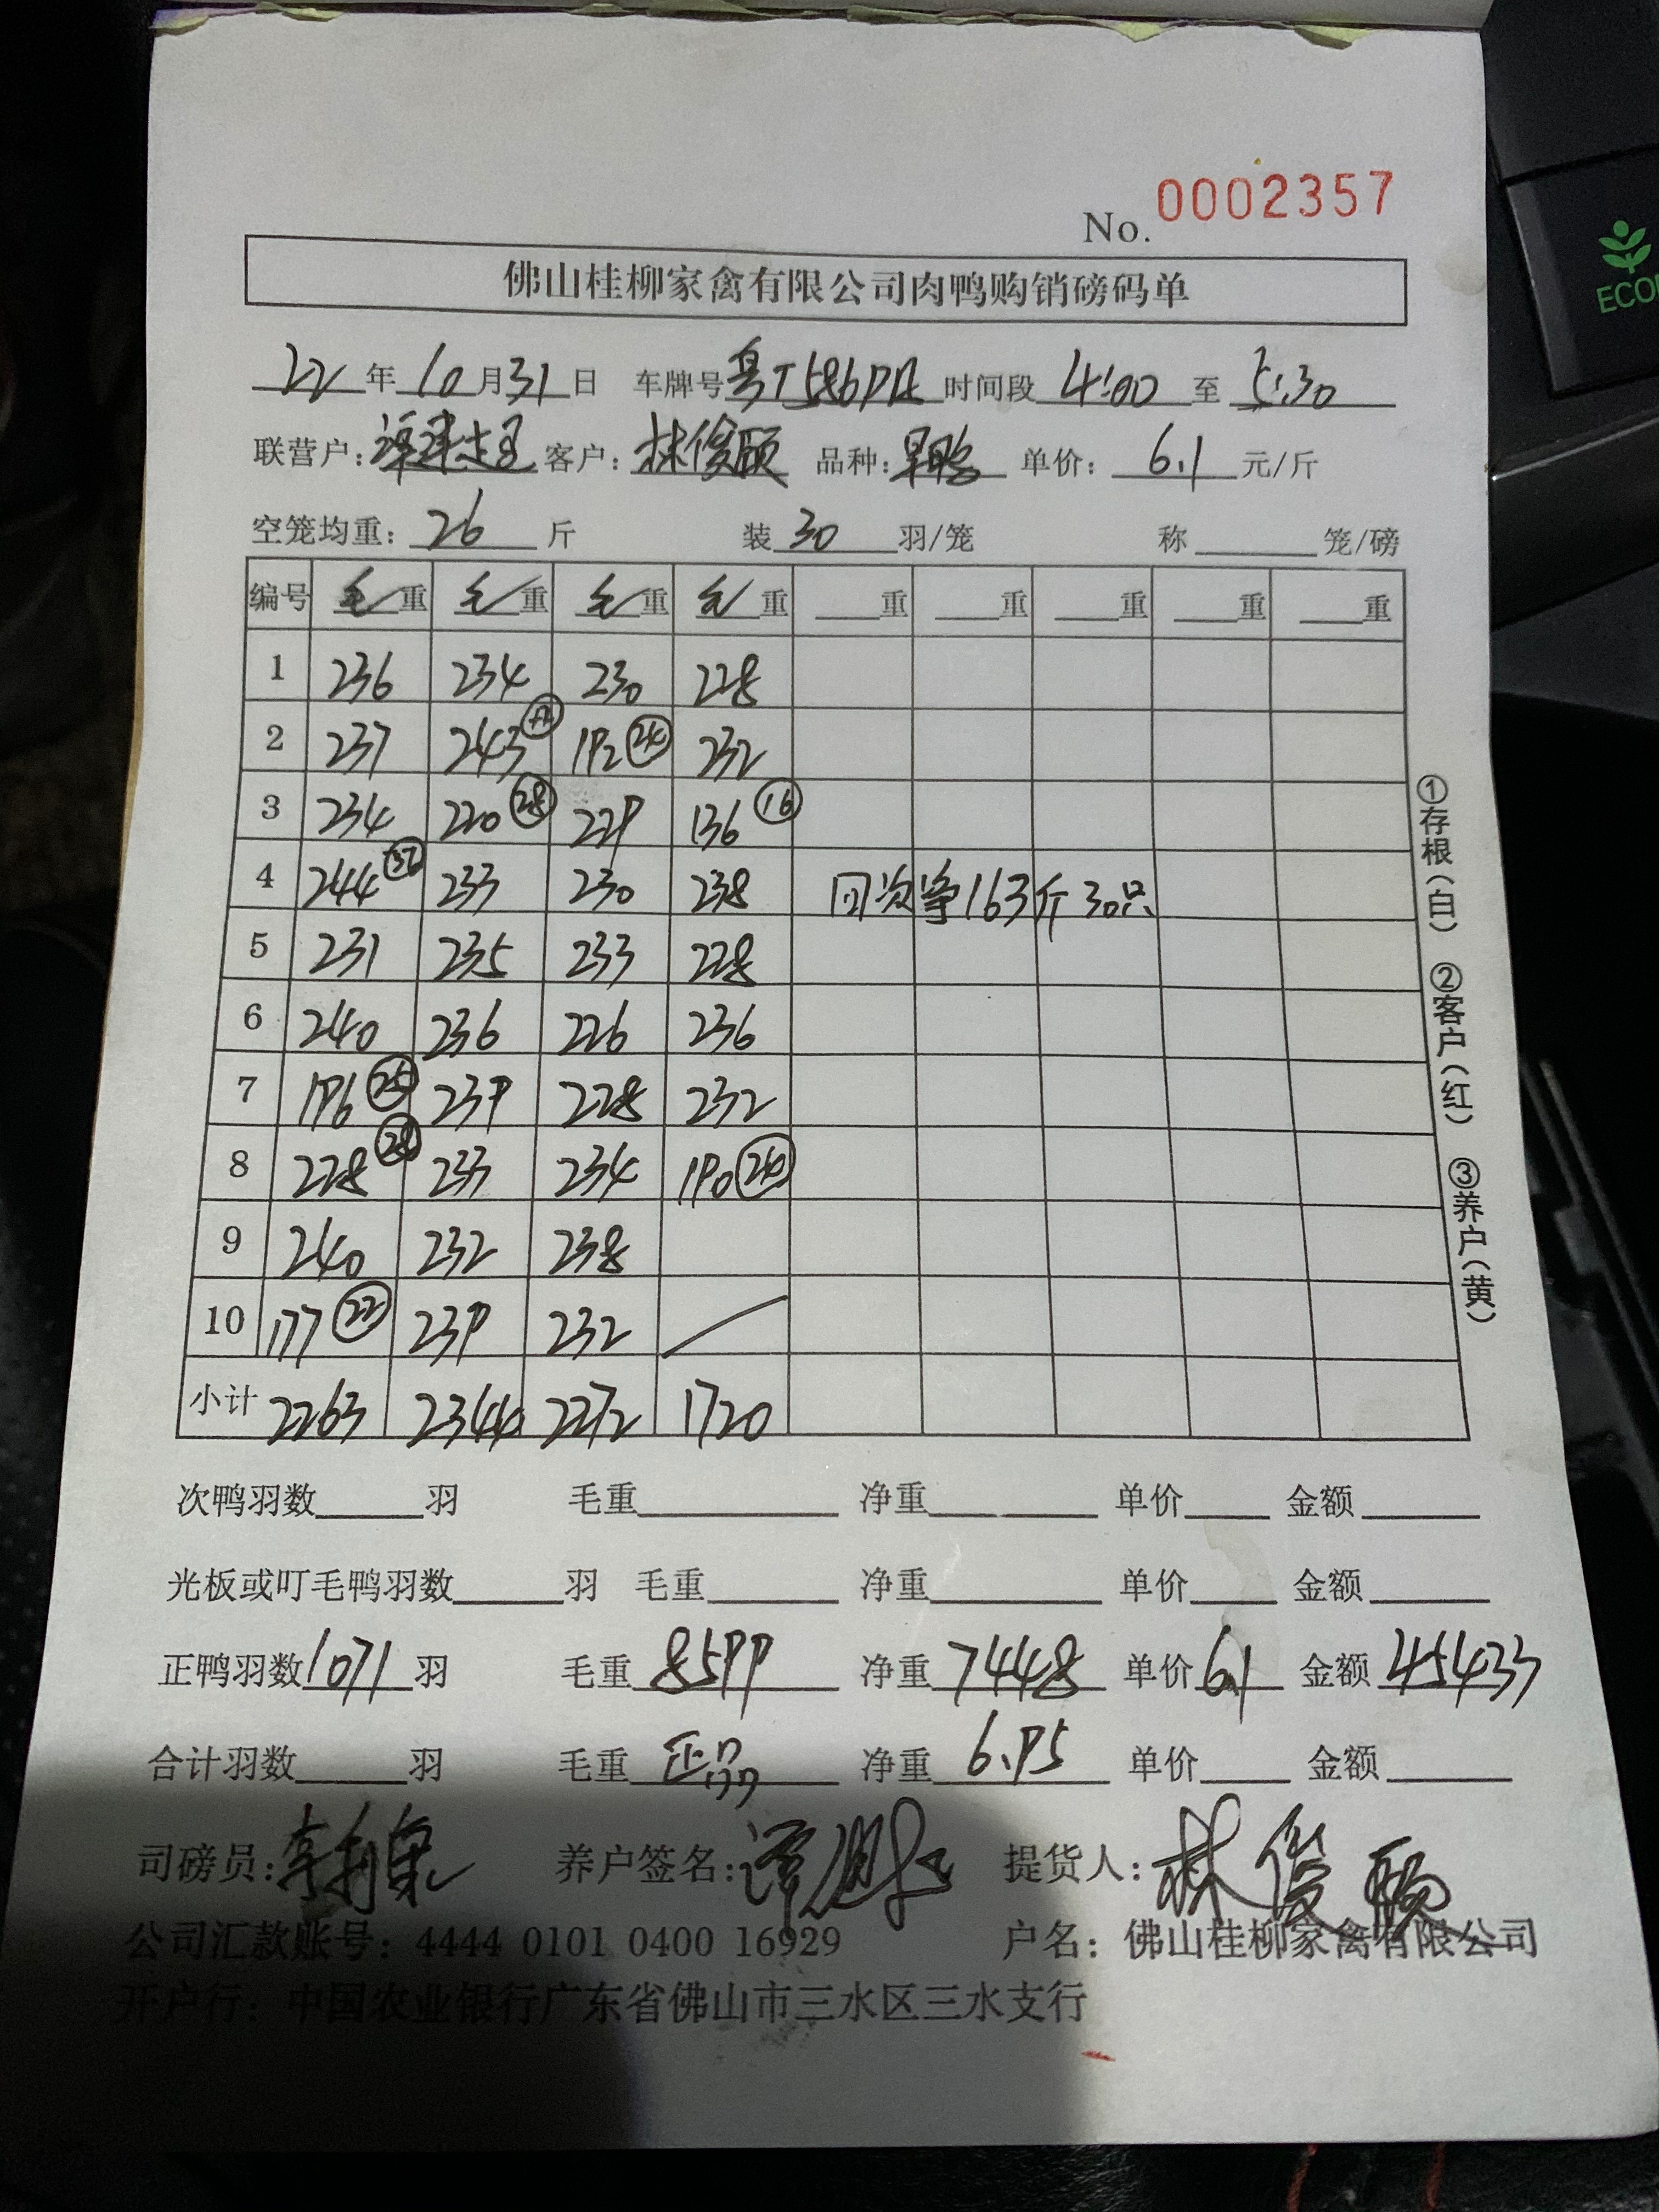 No. 0002357
ECO
佛山桂柳家禽有限公司肉鸭购销磅码单
22 年 10 月 31 日 车牌号 粤T586 时间段 4:00 至 5:30
联营户: 谭 客户: 林俊颐 品种: 旱鸭 单价: 6.1 元/斤
空笼均重: 26 斤 装 30 羽/笼 称 笼/磅
编号 毛重 毛重 毛重 毛重 重 重 重 重 重
1 236 234 230 228
2 237 243 192 24 232
3 234 220 28 229 136 16
4 244 233 230 238 回次净163斤30只
5 231 235 233 228
6 240 236 226 236
7 196 25 239 228 232
8 228 28 233 234 190 24
9 240 232 238
10 177 22 239 232
小计 2263 2344 2272 1720
次鸭羽数 羽 毛重 净重 单价 金额
光板或叮毛鸭羽数 羽 毛重 净重 单价 金额
正鸭羽数 1071 羽 毛重 8599 净重 7448 单价 6.1 金额 45433
合计羽数 羽 毛重 正品 净重 6.95 单价 金额
司磅员: 养户签名: 谭 提货人: 林俊颐
公司汇款账号: 4444 0101 0400 16929 户名: 佛山桂柳家禽有限公司
开户行: 中国农业银行广东省佛山市三水区三水支行
①存根(白) ②客户(红) ③养户(黄)